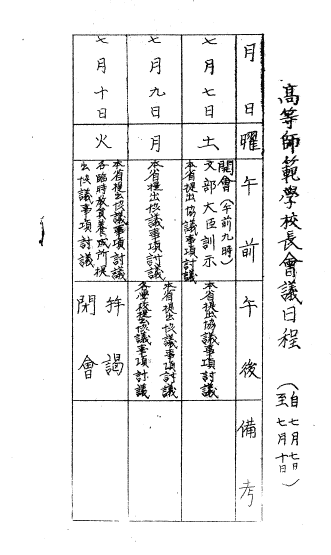 高等師範學校長會議日程
(自七月七日
至七月十日)
月日
曜
午前
午後
備考
七月七日
土
開會(午前九時)
文部大臣訓示
本省提出協議事項討議
本省提出協議事項討議
七月九日
月
本省提出協議事項討議
本省提出協議事項討議
各學校提出協議事項討議
七月十日
火
本省提出協議事項討議
各臨時教員養成所提
出協議事項討議
拝謁
閉會